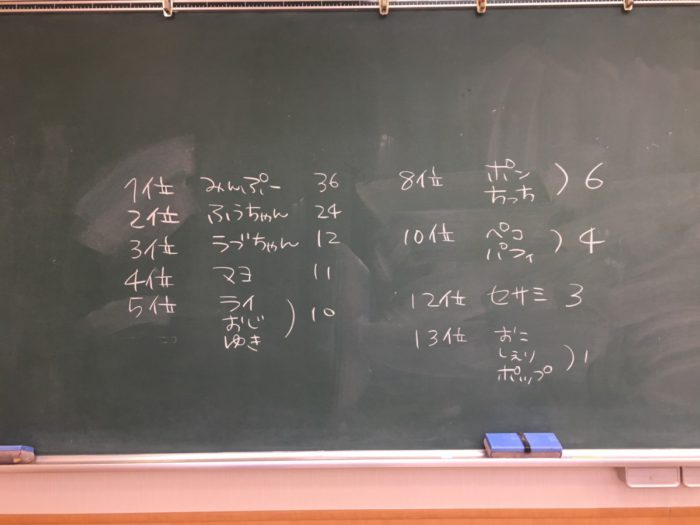 1位 みんぷー 36
2位 ふうちゃん 24
3位 ラブちゃん 12
4位 マヨ 11
5位 ライ
おじ
ゆき
) 10
8位 ポン
ちっち
) 6
10位 ペコ
パフィ
) 4
12位 セサミ 3
13位 おこ
しぇり
ポップ
) 1